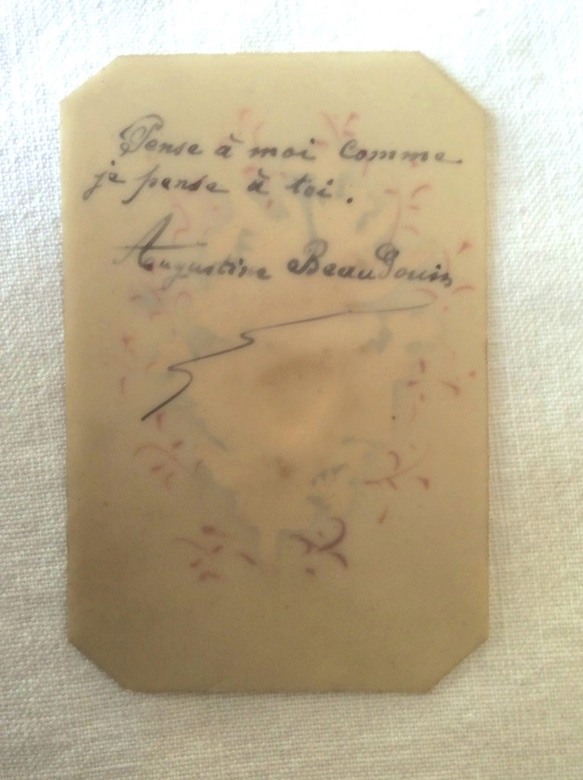 Pense à moi comme
je pense à toi.
Augustine Beaudouin